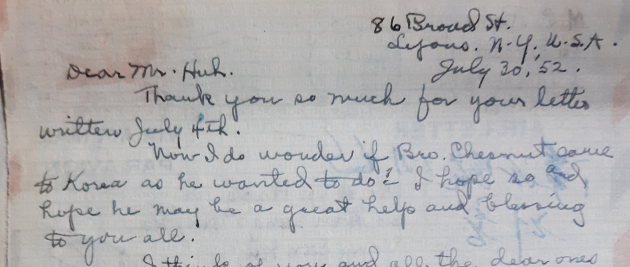 86 Broad St.
Lyons. N-Y. U.S.A.
July 30, '52.
Dear Mr. Huh.
Thank you so much for your letter
written July 4th.
Now I do wonder if Bro. Chesnut came
to Korea as he wanted to do? I hope so and
hope he may be a great help and blessing
to you all.
I think of you and all the dear ones